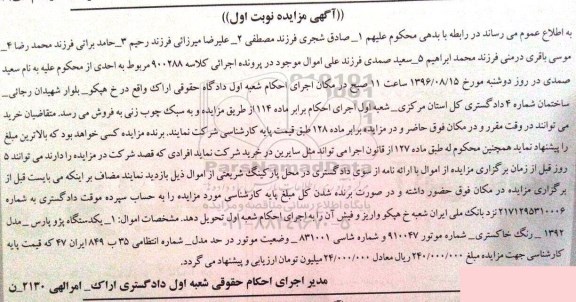 ((آگهی مزایده نوبت اول))
به اطلاع عموم می رساند در رابطه با بدهی محکوم علیهم ۱_صادق شجری فرزند مصطفی ۲_ علیرضا میرزائی فرزند رحیم ۳_حامد براتی فرزند محمد رضا ۴_
موسی باقری درمنی فرزند محمد ابراهیم ۵_سعید صمدی فرزند علی اموال موجود در پرونده اجرائی کلاسه ۹۰۰۲۸۸ مربوط به احدی از محکوم علیه به نام سعید
صمدی در روز دوشنبه مورخ ۱۳۹۶/۰۸/۱۵ ساعت ۱۱ صبح در مکان اجرای احکام شعبه اول دادگاه حقوقی اراک واقع در خ هپکو_ بلوار شهیدان رجائی_
ساختمان شماره ۴ دادگستری کل استان مرکزی_ شعبه اول اجرای احکام برابر ماده ۱۱۴ از طریق مزایده و به سبک چوب زنی به فروش می رسد. متقاضیان خرید
می توانند در وقت مقرر و در مکان فوق حاضر و در مزایده برابر ماده ۱۲۸ طبق قیمت پایه کارشناسی شرکت نمایند. برنده مزایده کسی خواهد بود که بالاترین مبلغ
را پیشنهاد نماید همچنین محکوم له طبق ماده ۱۲۷ از قانون اجرا می تواند مثل سایرین در خرید شرکت نماید افرادی که قصد شرکت در مزایده را دارند می توانند ۵
روز قبل از زمان برگزاری مزایده از اموال با ارائه نامه از سوی دادگستری در محل پارکینگ شریعتی از اموال ذیل بازدید نمایند. مضاف بر اینکه می بایست قبل از
برگزاری مزایده در مکان فوق حضور داشته و در صورت برنده شدن کل مبلغ پایه کارشناسی مورد مزایده را به حساب سپرده موقت دادگستری به شماره
۲۱۷۱۲۹۵۳۱۰۰۶ نزد بانک ملی ایران شعبه خ هپکو واریز و فیش آن را به اجرای احکام شعبه اول تحویل دهد. مشخصات اموال: ۱_ یکدستگاه پژو پارس _ مدل
۱۳۹۲ _ رنگ خاکستری_ شماره موتور ۹۱۰۰۴۷ و شماره شاسی ۸۳۱۰۰۱_ وضعیت موتور در حد مدل_ شماره انتظامی ۳۵ ب ۸۴۹ ایران ۴۷ که قیمت پایه
کارشناسی جهت مزایده مبلغ ۲۴۰/۰۰۰/۰۰۰ ریال معادل ۲۴/۰۰۰/۰۰۰ میلیون تومان ارزیابی و پیشنهاد می گردد.
مدیر اجرای احکام حقوقی شعبه اول دادگستری اراک_ امرالهی ۲۱۳۰_ن